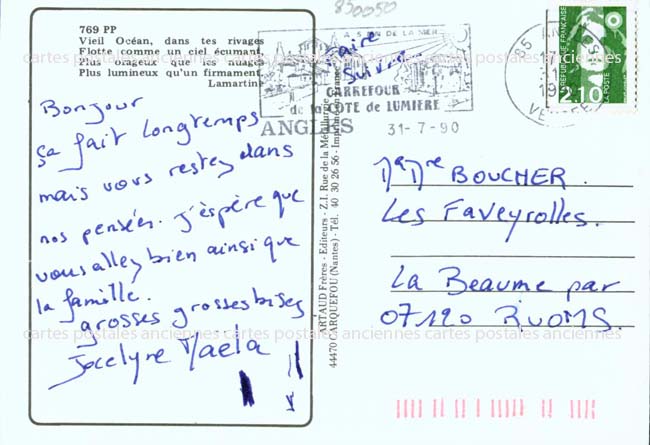 830050
769 PP
Vieil Océan, dans tes rivages
Flotte comme un ciel écumant,
Plus orageux que les nuages
Plus lumineux qu'un firmament.
Lamartine
Bonjour
ça fait longtemps
mais vous restez dans
nos pensées. j'éspère que
vous allez bien ainsi que
la famille.
grosses grosses bises
Jocelyne Maëla
DE LA MER
Faire
Suivre
CARREFOUR
de la CÔTE de LUMIÈRE
ANGLES
31-7-90
85
19
VENDEE
REPUBLIQUE FRANÇAISE
LA POSTE
2,10
ARTAUD Frères - Editeurs - Z.I. Rue de la Métallurgie
44470 CARQUEFOU (Nantes) - Tél. 40 30 26 56 - Imprimé en France
BOUCHER.
Les Faveyrolles.
La Beaume par
07120 RUOMS.
cartes postales anciennes cartes postales anciennes cartes postales anciennes